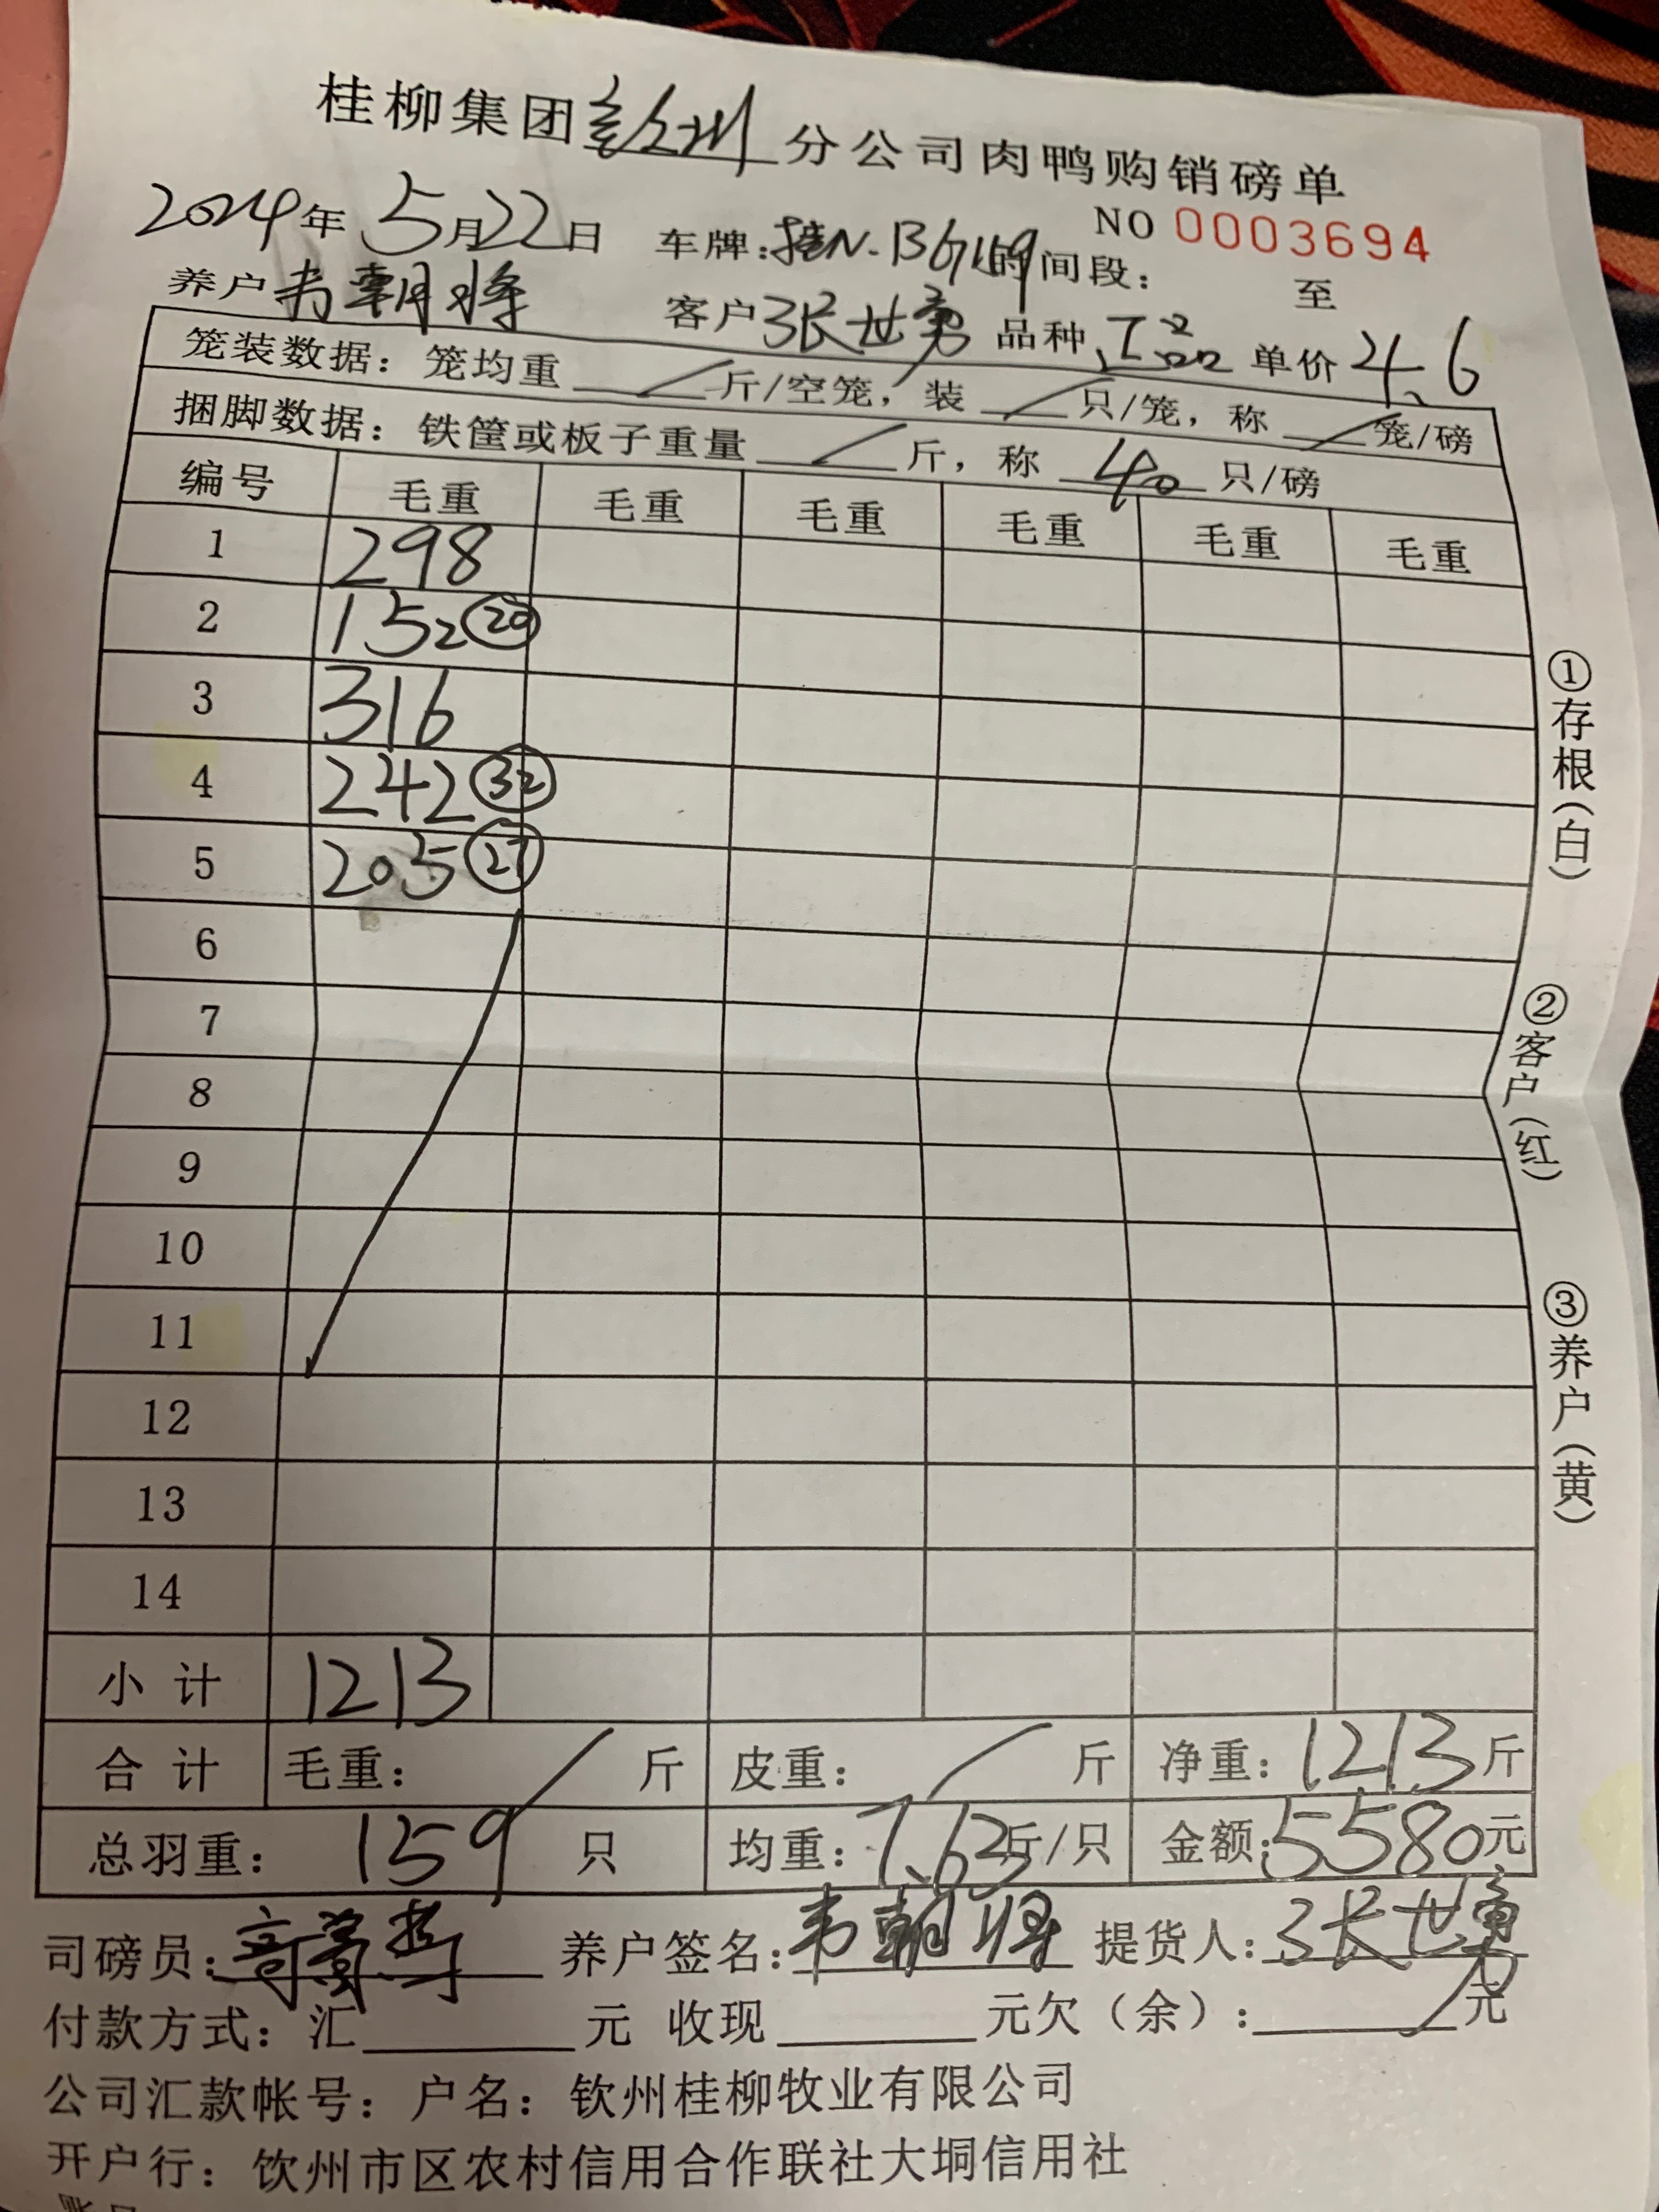 桂柳集团钦州分公司肉鸭购销磅单
NO 0003694
2024年5月22日 车牌:桂N. 时间段: 至
养户韦朝将 客户张世勇 品种正品 单价4.6
笼装数据: 笼均重 / 斤/空笼, 装 / 只/笼, 称 / 笼/磅
捆脚数据: 铁筐或板子重量 / 斤, 称 40 只/磅
编号 毛重 毛重 毛重 毛重 毛重 毛重
1 298
2 152 ⑳
3 316
4 242 ㉜
5 205 ㉗
6
7
8
9
10
11
12
13
14
小计 1213
合计 毛重: / 斤 皮重: / 斤 净重: 1213斤
总羽重: 159 只 均重: 7.63斤/只 金额:5580元
司磅员: 养户签名:韦朝将 提货人:张世勇
付款方式: 汇 元 收现 元欠(余): 元
公司汇款帐号: 户名: 钦州桂柳牧业有限公司
开户行: 钦州市区农村信用合作联社大垌信用社
①存根(白)
②客户(红)
③养户(黄)